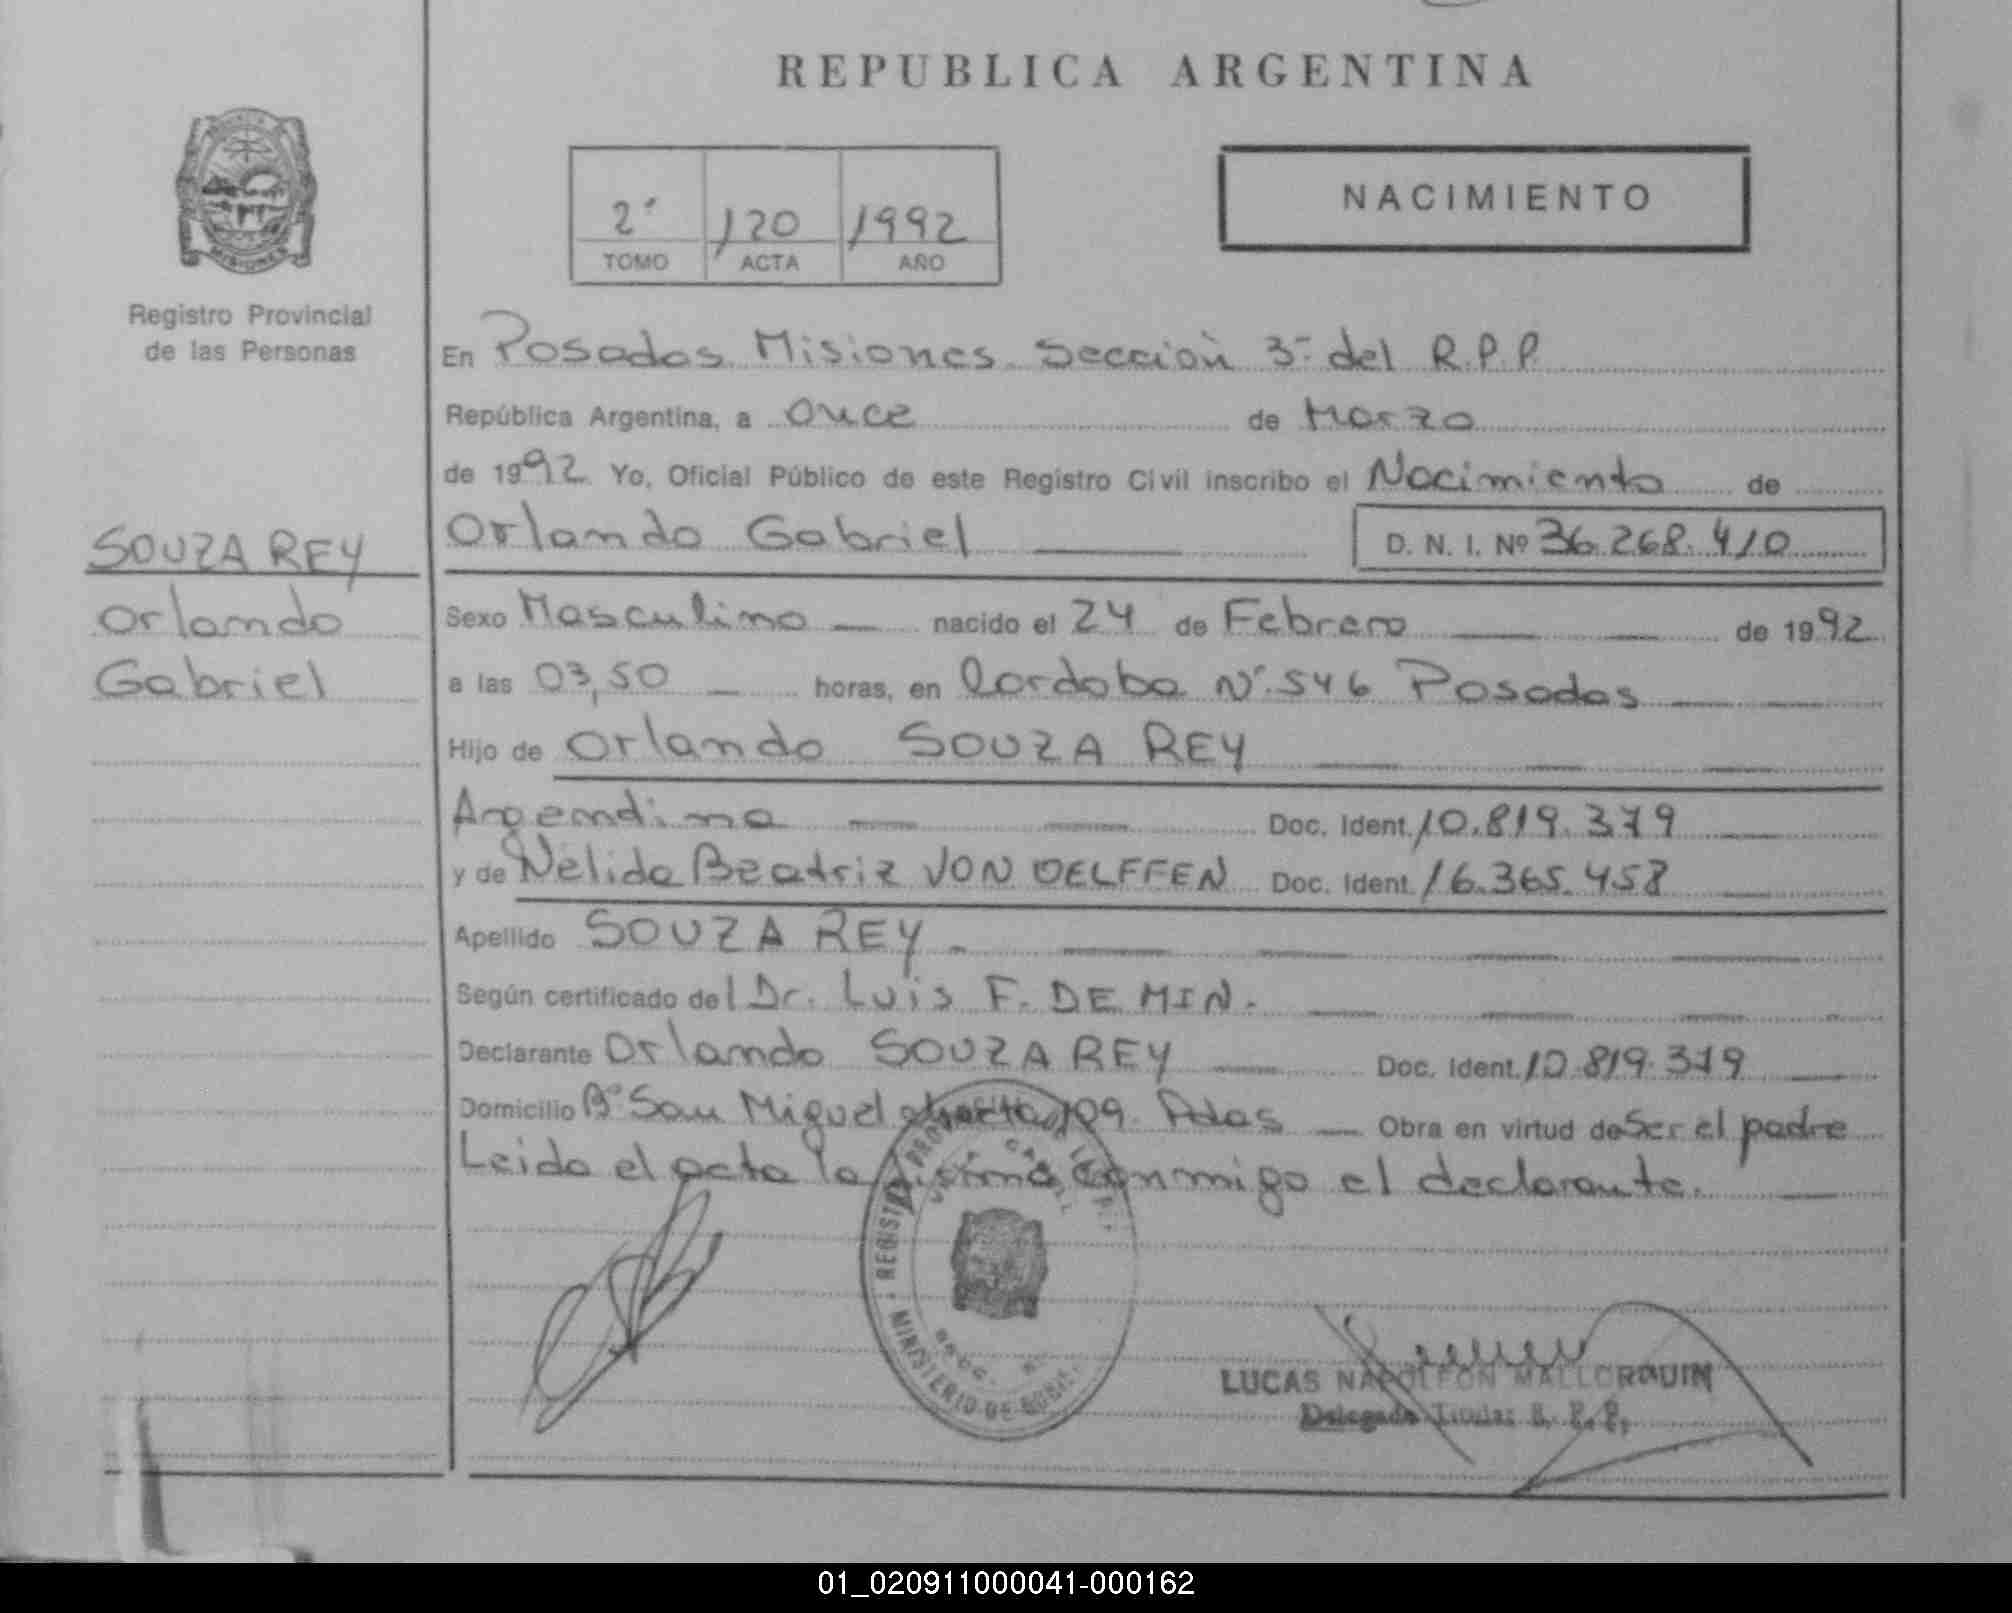 REPUBLICA ARGENTINA
MISIONES
Registro Provincial
de las Personas
2° 120 1992
TOMO ACTA AÑO
NACIMIENTO
En Posadas Misiones Sección 3° del R.P.P.
República Argentina, a once de Marzo
de 1992 Yo, Oficial Público de este Registro Civil inscribo el Nacimiento de
Orlando Gabriel D. N. I. Nº 36.268.410
SOUZA REY
Orlando
Gabriel
Sexo Masculino nacido el 24 de Febrero de 1992
a las 03,50 horas, en Cordoba N° 546 Posadas
Hijo de Orlando SOUZA REY
Argentino Doc. Ident. 10.819.379
y de Nélida Beatriz VON OELFFEN Doc. Ident. 16.365.458
Apellido SOUZA REY
Según certificado del Dr. Luis F. DE MIN.
Declarante Orlando SOUZA REY Doc. Ident. 10.819.379
Domicilio B° San Miguel chacra 109. Pdas Obra en virtud de Ser el padre
Leida el acta la firma conmigo el declarante.
REGISTRO MINISTERIO DE
LUCAS NAPOLEON MALLORQUIN
Delegado Titular R. P. P.
01_020911000041-000162